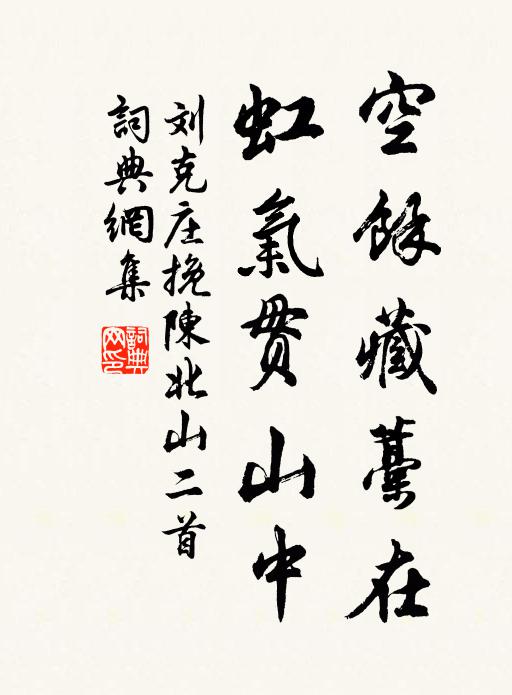 空餘藏藁在
虹氣贯山中
刘克庄挽陳北山二首
詞典網集
詞典網印